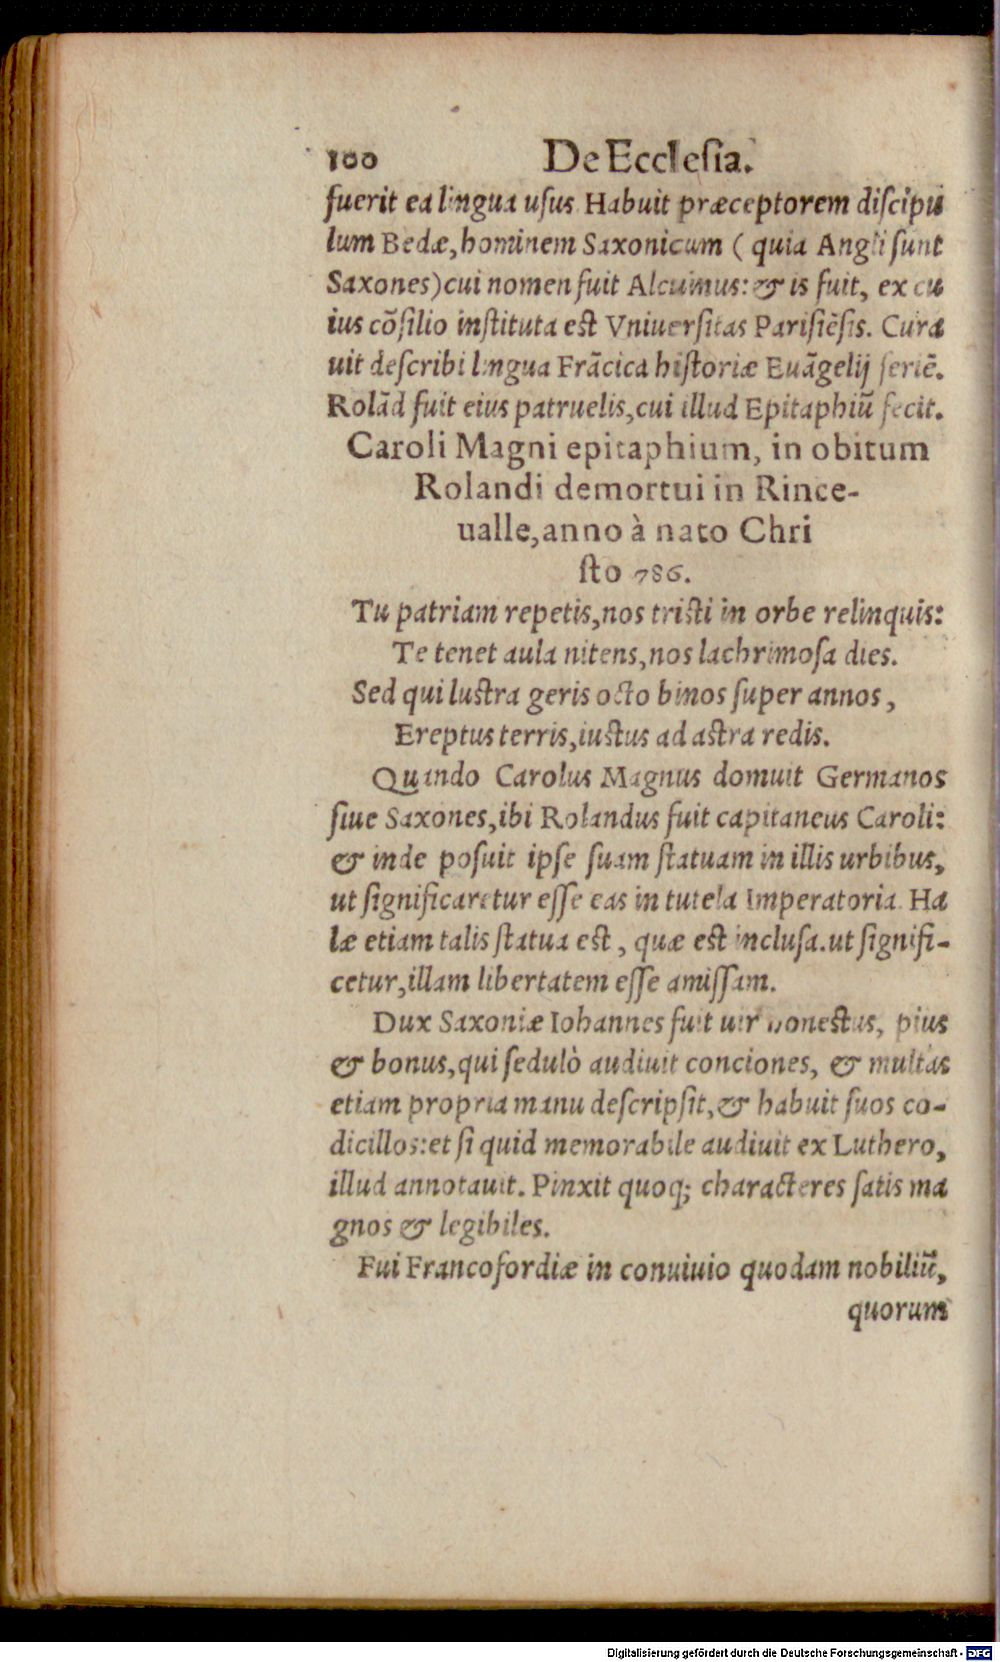 100 De Ecclesia.
fuerit ea lingua usus. Habuit præceptorem discipu
lum Bedæ, hominem Saxonicum ( quia Angli sunt
Saxones) cui nomen fuit Alcuinus: & is fuit, ex cu
ius cõsilio instituta est Vniuersitas Parisiẽsis. Cura
uit describi lingua Frãcica historiæ Euãgelij seriẽ.
Rolãd fuit eius patruelis, cui illud Epitaphiũ fecit.
Caroli Magni epitaphium, in obitum
Rolandi demortui in Rince-
ualle, anno à nato Chri
sto 786.
Tu patriam repetis, nos tristi in orbe relinquis:
Te tenet aula nitens, nos lachrimosa dies.
Sed qui lustra geris octo binos super annos,
Ereptus terris, iustus ad astra redis.
Quando Carolus Magnus domuit Germanos
siue Saxones, ibi Rolandus fuit capitaneus Caroli:
& inde posuit ipse suam statuam in illis urbibus,
ut significaretur esse eas in tutela Imperatoria. Ha
læ etiam talis statua est, quæ est inclusa. ut signifi-
cetur, illam libertatem esse amissam.
Dux Saxoniæ Iohannes fuit uir honestus, pius
& bonus, qui sedulò audiuit conciones, & multas
etiam propria manu descripsit, & habuit suos co-
dicillos: et si quid memorabile audiuit ex Luthero,
illud annotauit. Pinxit quoq; characteres satis ma
gnos & legibiles.
Fui Francofordiæ in conuiuio quodam nobiliũ,
quorum
Digitalisierung gefördert durch die Deutsche Forschungsgemeinschaft - DFG